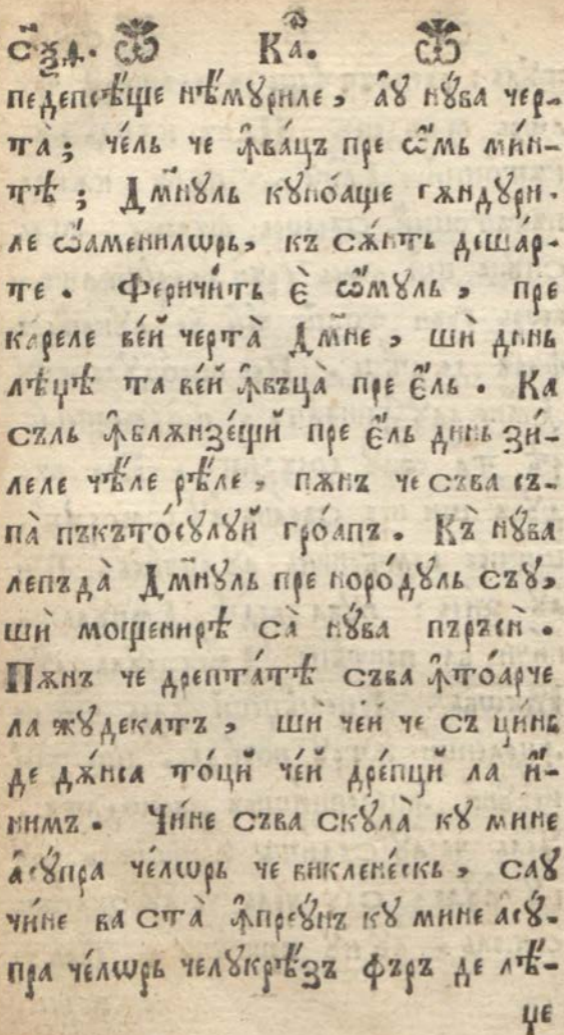 педепсѣще нѣмуриле, а҆у нува чер-
та̀; че́ль че ꙟ҆ва́цъ пре ѡ҆мь ми́н-
тѣ; Дм҃нуль куно́аще гѫндури-
ле ѡ҆аменилѡрь, къ сѫ́нть дешарте
те. Феричи́ть є҆̀ ѡ҆муль, пре
кареле вей чертà Дм҃не, ши динь
лѣџѣ та вей ꙟ҆въца̀ пре є҆ль. Ка
съль ꙟ҆блѫнзе́щй пре є҆ль динь зи́-
леле чѣле рѣле, пѫнъ че съва съ-
па̀ пъкъто́сулуй гро́апъ. Къ̀ нува
лепъда̀ Дм҃нуль пре норо́дуль съу,
шѝ мощенирѣ са̀ нува пъръсѝ.
Пѫнъ че дрепта́тѣ съва ꙟ҆то́арче
ла жудекатъ, ши чей че съ цинь
де дѫ́нса то́цй че́й дре́пцй ла и҆́-
нимъ. Чи́не съва скула̀ ку мине
а҆су́пра че́лѡрь че виклене́скь, сау
чи́не ва ста̀ ꙟ҆преу́нъ ку мине асу́-
пра че́лѡрь челукрѣ́зъ фъръ де лѣ́-
џе